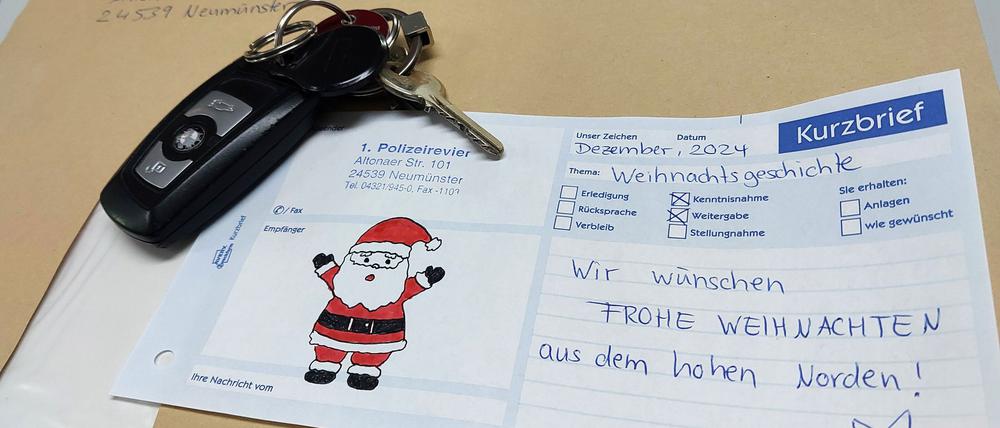 24539 Neumünster
1. Polizeirevier
Altonaer Str. 101
24539 Neumünster
Tel. 04321/945-0, Fax -1103
✆/ Fax
Empfänger
Ihre Nachricht vom
Kurzbrief
Unser Zeichen Datum
Dezember, 2024
Kurzbrief
Thema: Weihnachtsgeschichte
Erledigung
Rücksprache
Verbleib
Kenntnisnahme
Weitergabe
Stellungnahme
Sie erhalten:
Anlagen
wie gewünscht
Wir wünschen
FROHE WEIHNACHTEN
aus dem hohen Norden!